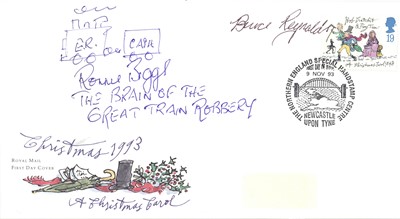 E.R.
Bruce Reynolds
19
Ronnie Biggs
THE BRAIN OF THE
GREAT TRAIN ROBBERY
THE NORTHERN ENGLAND SPECIAL HANDSTAMP CENTRE
9 NOV 93
NEWCASTLE
UPON TYNE
Christmas 1993
ROYAL MAIL
FIRST DAY COVER
A Christmas Carol